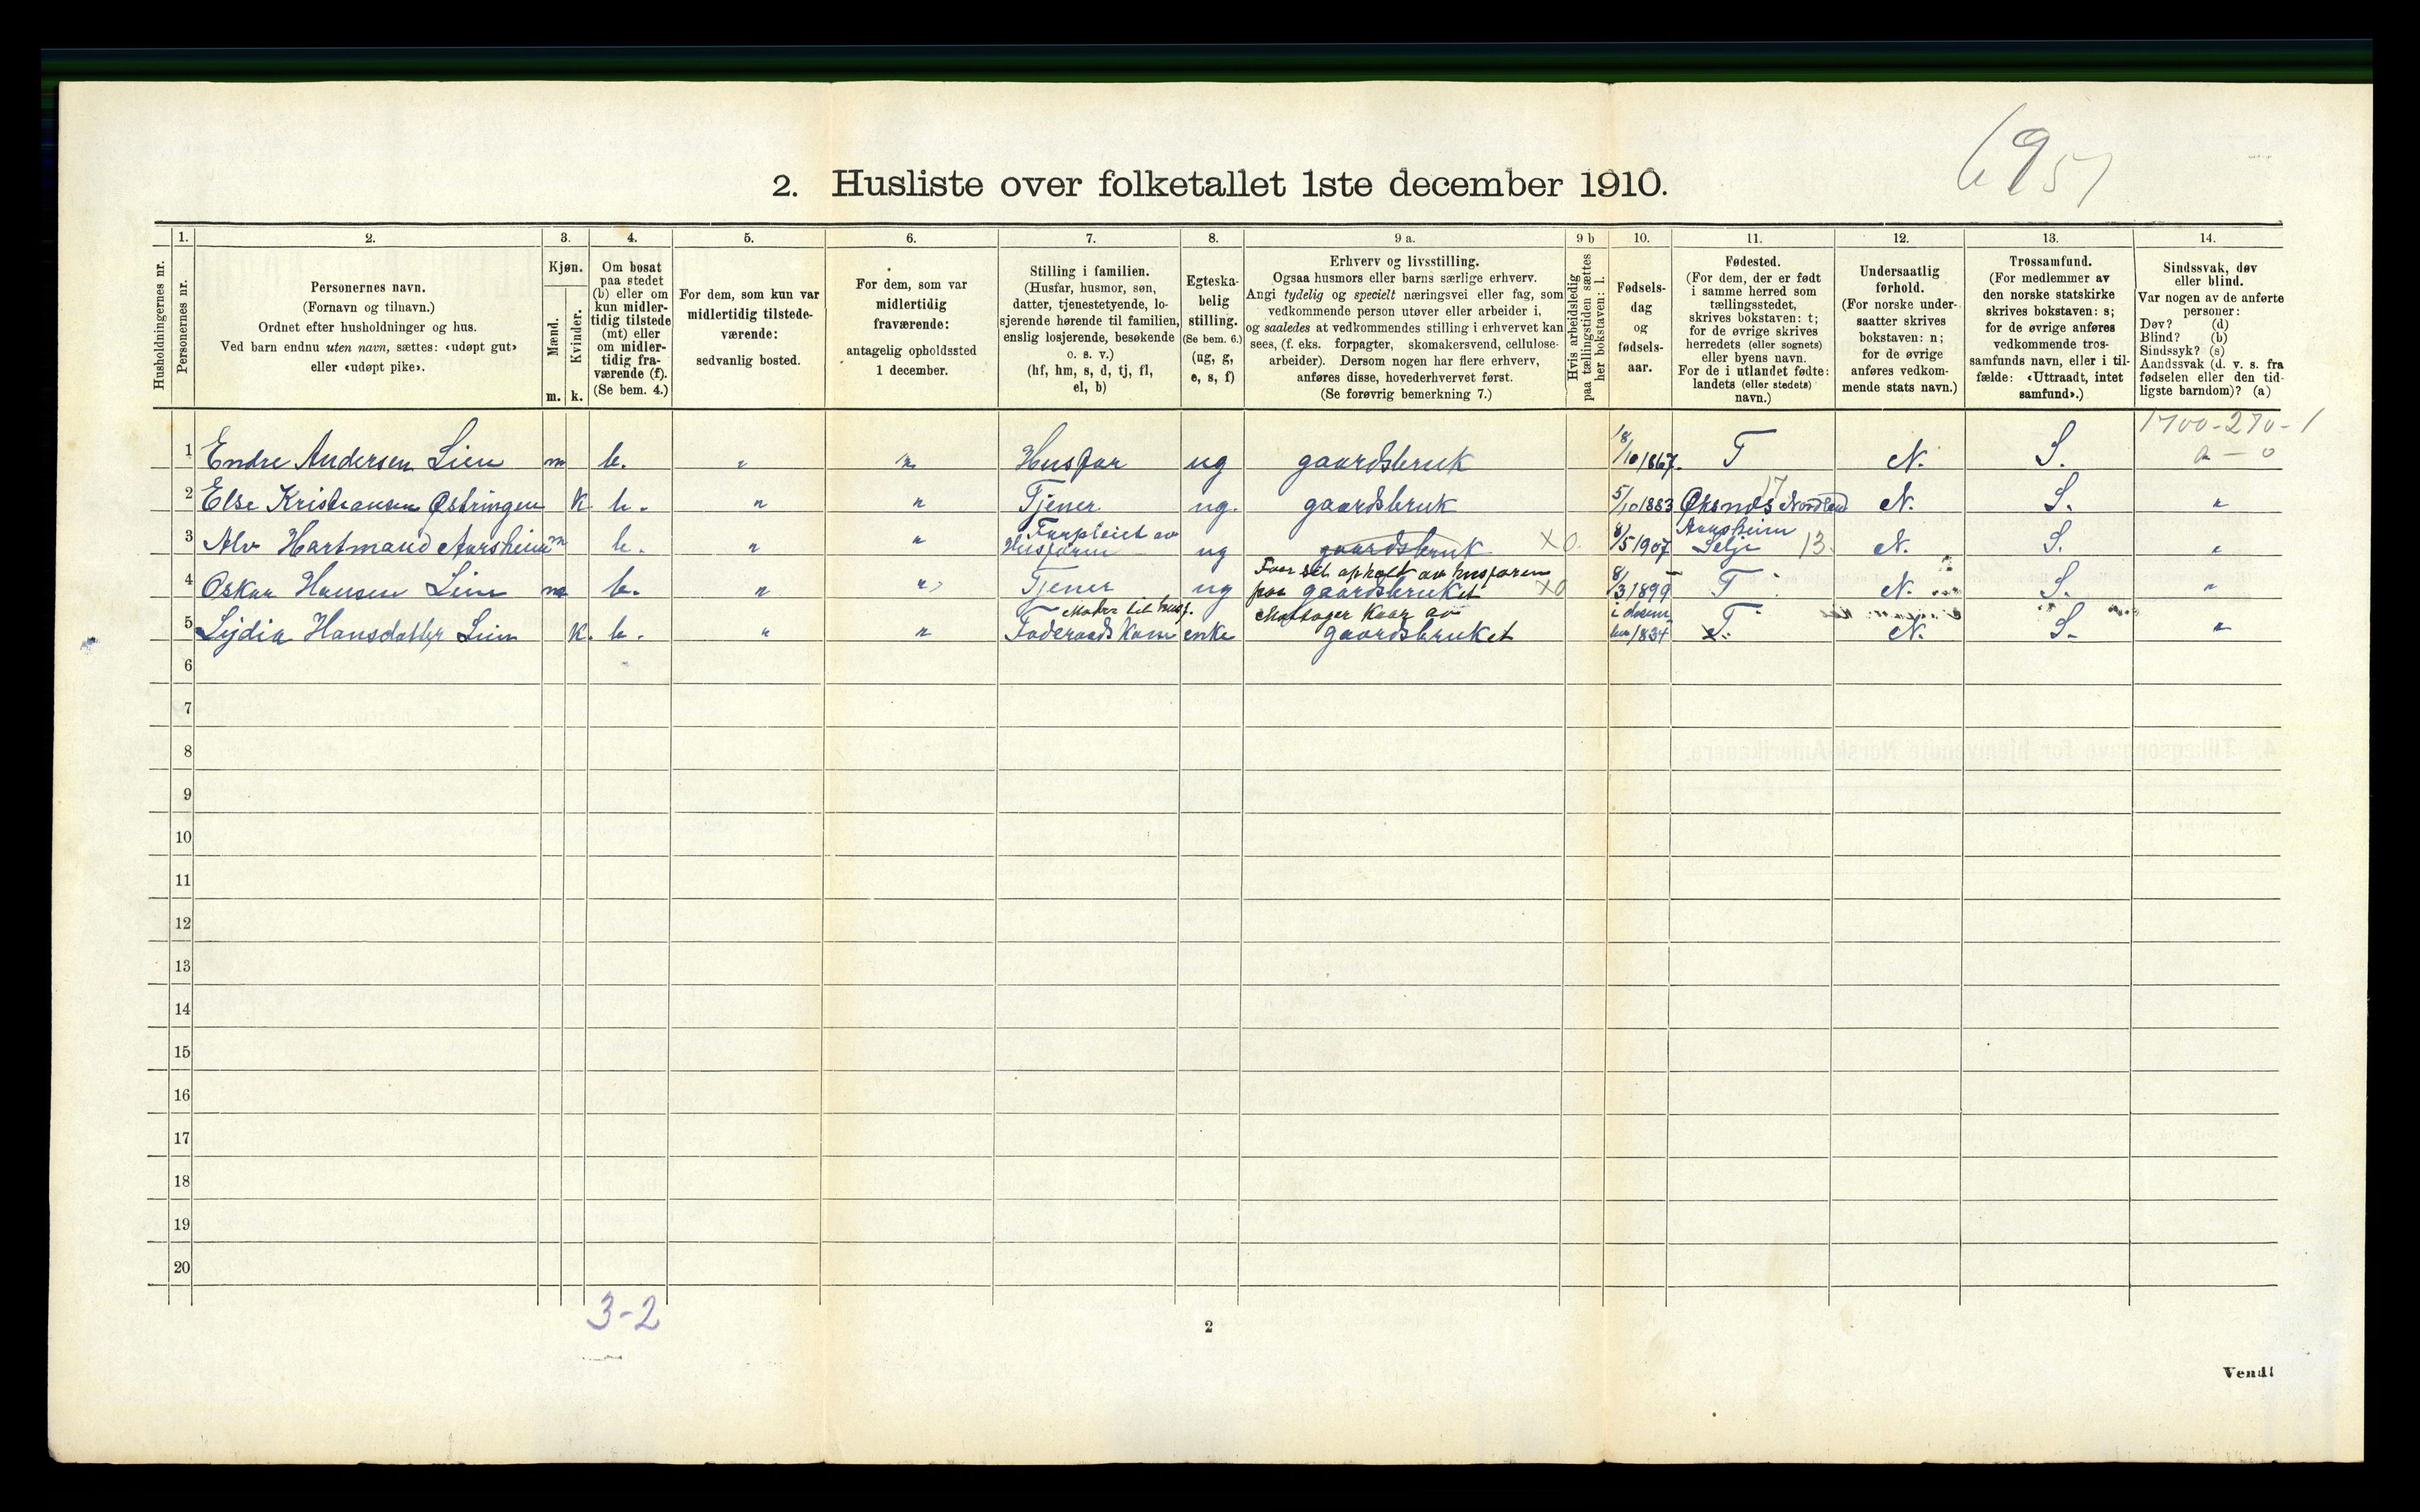 695
2. Husliste over folketallet 1ste december 1910.
Husholdningernes nr.
1.
Personernes nr.
2.
Personernes navn.
(Fornavn og tilnavn.)
Ordnet efter husholdninger og hus.
Ved barn endnu uten navn, sættes: «udøpt gut»
eller «udøpt pike».
3.
Kjøn.
Mænd.
Kvinder.
m. k.
4.
Om bosat
paa stedet
(b) eller om
kun midler-
tidig tilstede
(mt) eller
om midler-
tidig fra-
værende (f).
(Se bem. 4.)
5.
For dem, som kun var
midlertidig tilstede-
værende:
sedvanlig bosted.
6.
For dem, som var
midlertidig
fraværende:
antagelig opholdssted
1 december.
7.
Stilling i familien.
(Husfar, husmor, søn,
datter, tjenestetyende, lo-
sjerende hørende til familien,
enslig losjerende, besøkende
o. s. v.)
(hf, hm, s, d, tj, fl,
el, b)
8.
Egteska-
belig
stilling.
(Se bem. 6.)
(ug, g,
e, s, f)
9 a.
Erhverv og livsstilling.
Ogsaa husmors eller barns særlige erhverv.
Angi tydelig og specielt næringsvei eller fag, som
vedkommende person utøver eller arbeider i,
og saaledes at vedkommendes stilling i erhvervet kan
sees, (f. eks. forpagter, skomakersvend, cellulose-
arbeider). Dersom nogen har flere erhverv,
anføres disse, hovederhvervet først.
(Se forøvrig bemerkning 7.)
9 b
Hvis arbeidsledig
paa tællingstiden sættes
her bokstaven: l.
10.
Fødsels-
dag
og
fødsels-
aar.
11.
Fødested.
(For dem, der er født
i samme herred som
tællingsstedet,
skrives bokstaven: t;
for de øvrige skrives
herredets (eller sognets)
eller byens navn.
For de i utlandet fødte:
landets (eller stedets)
navn.)
12.
Undersaatlig
forhold.
(For norske under-
saatter skrives
bokstaven: n;
for de øvrige
anføres vedkom-
mende stats navn.)
13.
Trossamfund.
(For medlemmer av
den norske statskirke
skrives bokstaven: s;
for de øvrige anføres
vedkommende tros-
samfunds navn, eller i til-
fælde: «Uttraadt, intet
samfund».)
14.
Sindssvak, døv
eller blind.
Var nogen av de anførte
personer:
Døv? (d)
Blind? (b)
Sindssyk? (s)
Aandssvak (d. v. s. fra
fødselen eller den tid-
ligste barndom)? (a)
1700-270-1
1 Endre Andersen Lien m b. " " Husfar ug gaardsbruk 18/10 1867. T N. S. a - 0
2 Else Kristiansen Østringen k. b. " " Tjener ug. gaardsbruk 5/10 1883 Øksnes Nordland 17 N. S. "
3 Alv Hartmand Aarsheim m b. " " Forpleiet av Husfaren ug gaardsbruk X0. 8/5 1907 Aarsheim Selje 13 N. S. "
4 Oskar Hansen Lien m b. " " Tjener ug Faar sit ophold av husfaren paa gaardsbruket X0 8/3 1899 T N. S. "
5 Lydia Hansdatter Lien K. b. " " Moder til husf. Føderaadskone enke Modtager Kaar av gaardsbruket 1834 T. N. S. "
6
7
8
9
10
11
12
13
14
15
16
17
18
19
20
3-2
2
Vend!